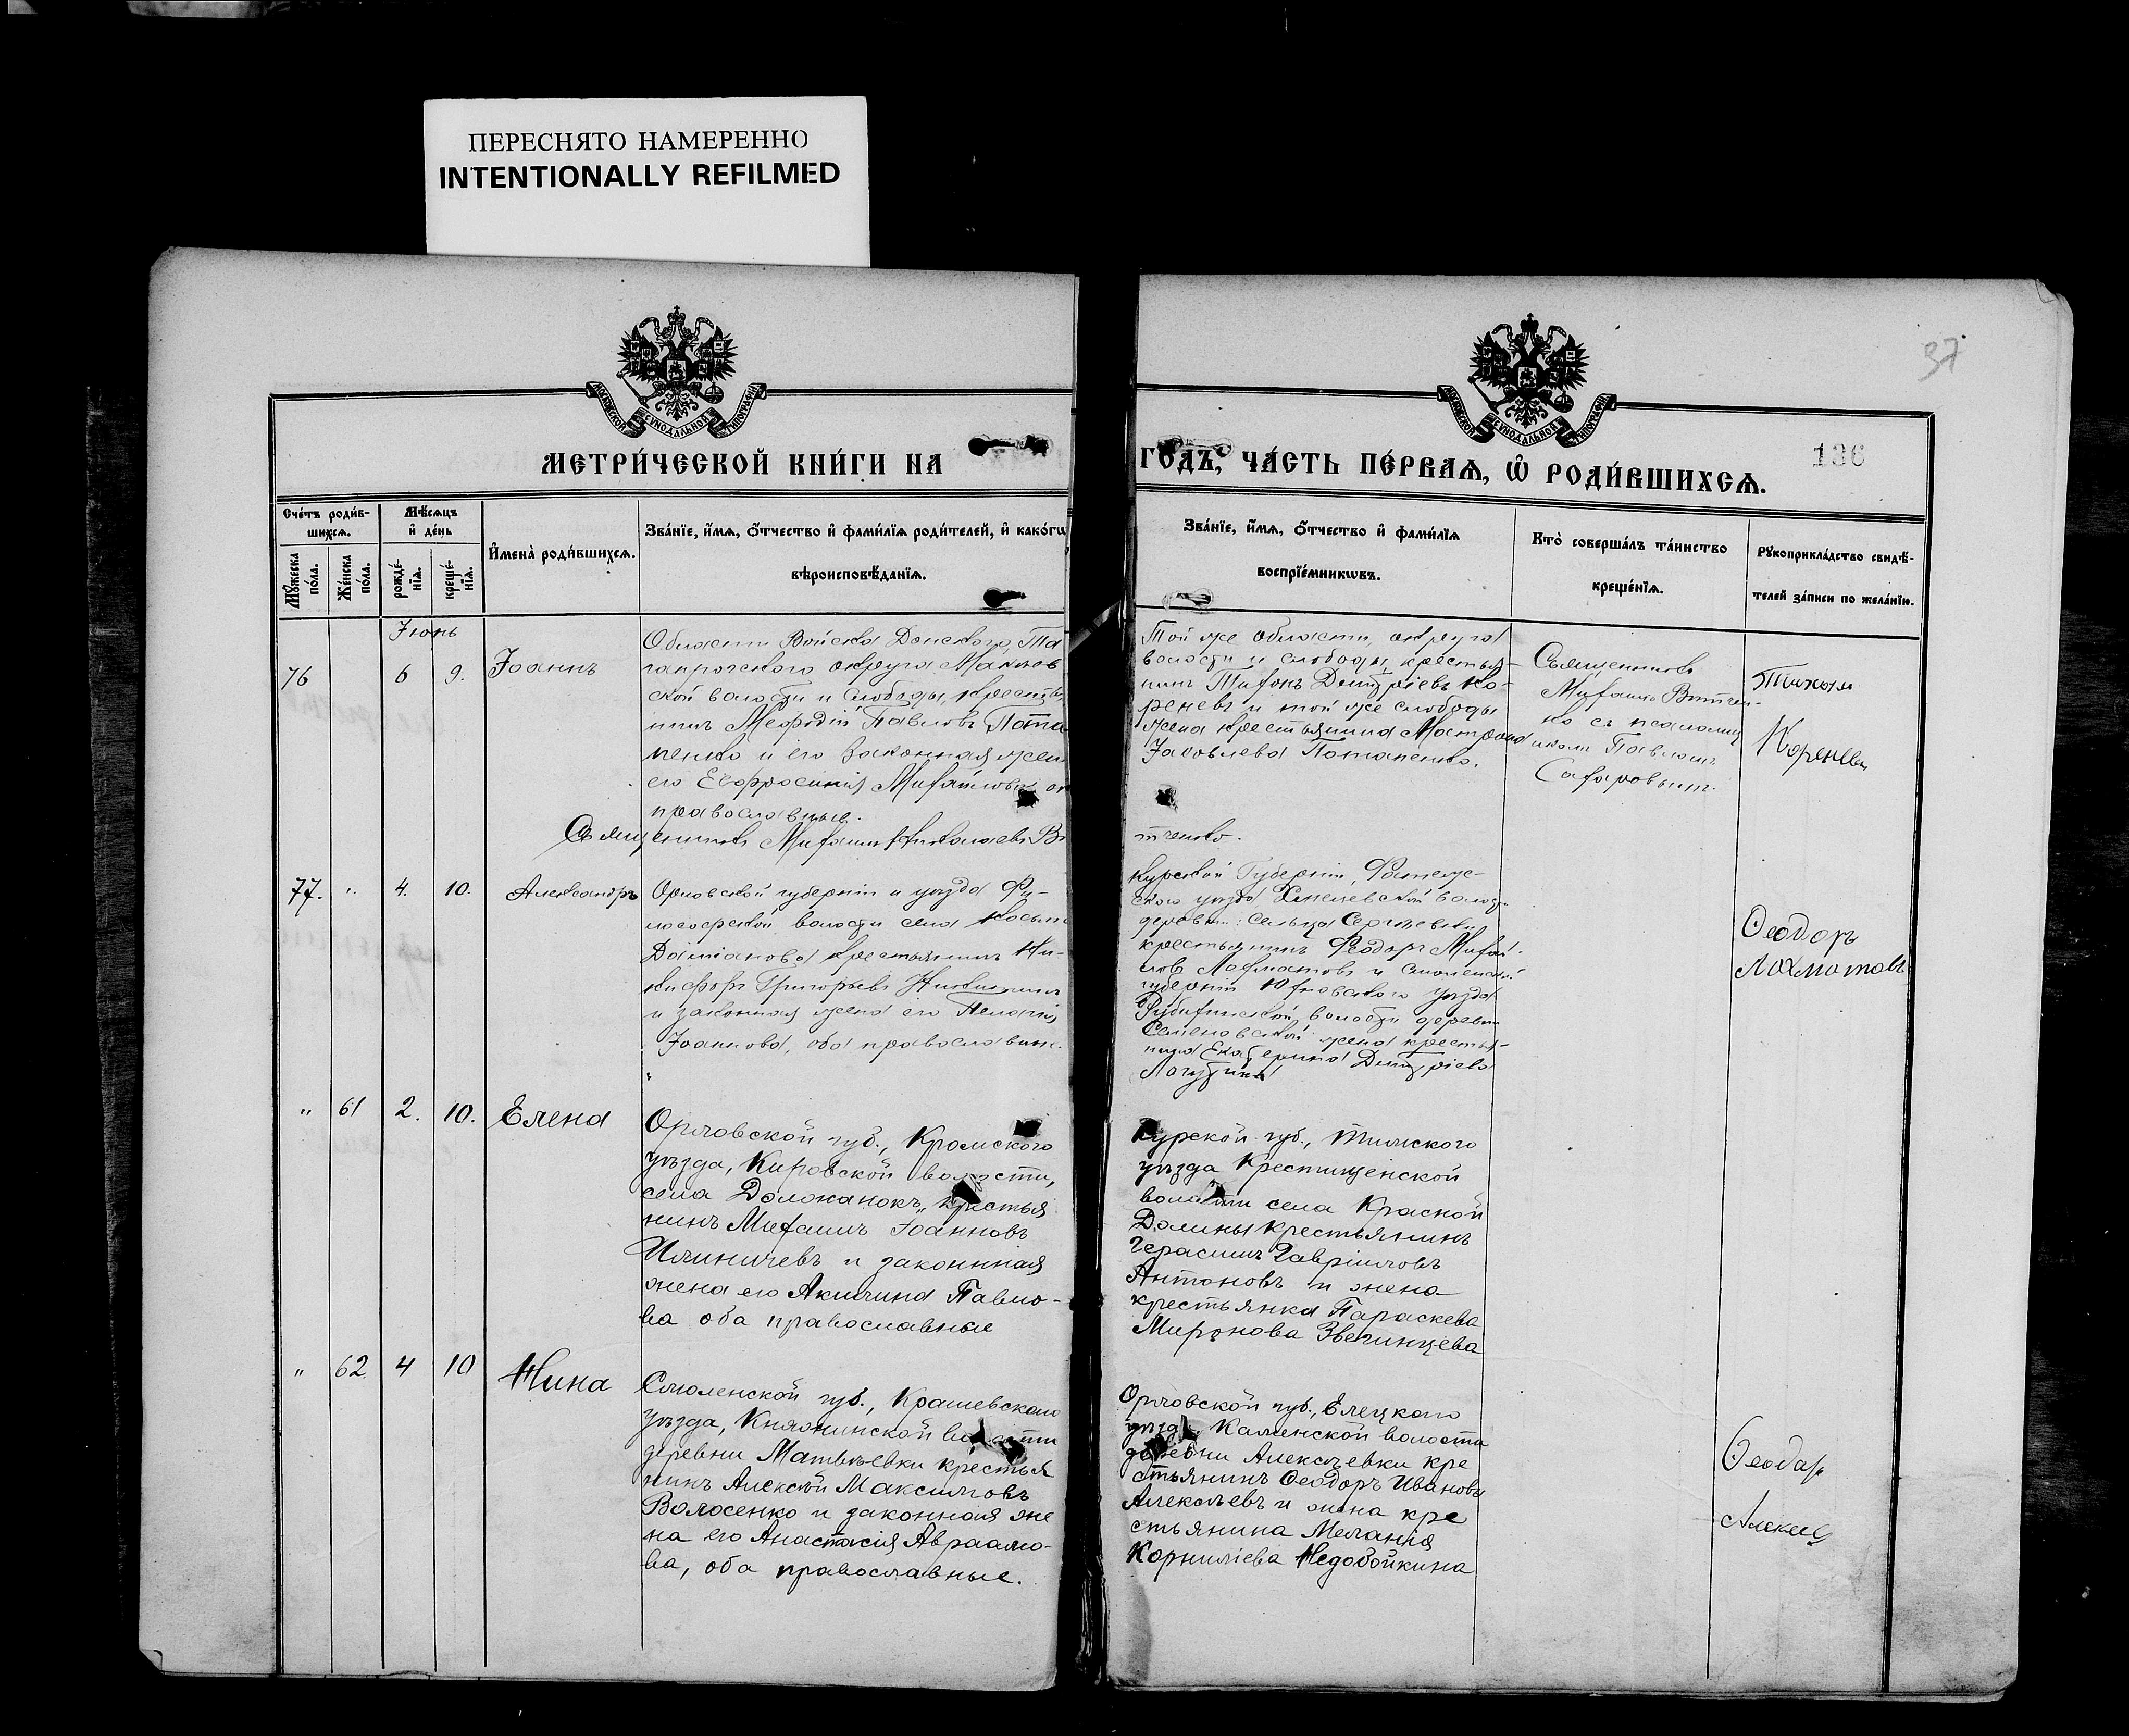 ПЕРЕСНЯТО НАМЕРЕННО
INTENTIONALLY REFILMED
37
МОСКОВСКОЙ СѴНОДАЛЬНОЙ ТИПОГРАФІИ
МОСКОВСКОЙ СѴНОДАЛЬНОЙ ТИПОГРАФІИ
МЕТРИ́ЧЕСКОЙ КНИ́ГИ НА
ГО́ДЪ, ЧА́СТЬ ПЕ́РВАѦ, Ѡ҆ РОДИ́ВШИХСѦ.
136
Сче́тъ роди́в-
шихсѧ.
Мѣ́сѧцъ
и҆ де́нь
Мꙋ́жеска
по́ла.
Же́нска
по́ла.
рожде́-
нїѧ.
креще́-
нїѧ.
И҆мена̀ роди́вшихсѧ.
Зва́нїе, и҆́мѧ, ѻ҆́тчество и҆ фами́лїѧ роди́телей, и҆ како́гѡ
вѣроисповѣ́данїѧ.
Зва́нїе, и҆́мѧ, ѻ҆́тчество и҆ фами́лїѧ
воспрїе́мникѡвъ.
Кто̀ соверша́лъ та́инство
креще́нїѧ.
Рꙋкоприкла́дство свидѣ́-
телей за́писи по жела́нїю.
Іюнь
76 6 9. Іоаннъ
Области Войска Донского, Та
ганрогского округа Макеев
ской волости и слободы, крестья
нинъ Меѳодій Павловъ Пота
пенко и его законная жена
его Евфросинія Михайлова, оба
православные.
Священникъ Михаилъ Николаевъ Ви
тченко.
Той же области, округа
волости и слободы, крестья-
нинъ Тихонъ Димитріевъ Ко-
реневъ и той же слободы
жена крестьянина Матрона
Іаковлева Потапенко.
Священникъ
Михаилъ Витчен-
ко съ псаломщ
икомъ Павломъ
Сахаровымъ.
Тихонъ
Кореневъ
77. " 4. 10. Александръ
Орловской губерніи и уѣзда Фи-
лософской волости села Косьмо
Даміанова крестьянинъ Ни-
кифоръ Григорьевъ Никишинъ
и законная жена его Пелагія
Іоаннова, оба православн.
Курской Губерніи, Фатеж-
ского уѣзда волости
деревни: Сельца Сергѣевки
крестьянинъ Ѳеодоръ Михай-
ловъ Лохматовъ и Смоленской
губерніи Юхновскаго уѣзда
волости деревни
Семеновской жена крестья-
нина Екатерина Димитріева
Лагутина
Ѳеодоръ
Лохматовъ
" 61 2. 10. Елена
Орловской губ., Кромского
уѣзда, Кировской волости,
села Должанокъ, крестья
нинъ Михаилъ Іоанновъ
Илиничевъ и законная
жена его Акилина Павло-
ва оба православные
Курской губ., Тимского
уѣзда Крестищенской
волости села Красной
Долины крестьянинъ
Герасимъ Гавріиловъ
Антоновъ и жена
крестьянка Параскева
Миронова Звегинцева
" 62 4 10 Нина
Смоленской губ., Крашевскаго
уѣзда, Княжинской волости
деревни Матвѣевки крестья
нинъ Алексѣй Максимовъ
Волосенко и законная же
на его Анастасія Авраамо-
ва, оба православные.
Орловской губ., Елецкаго
уѣзда, Каменской волости
деревни Алексѣевки кре
стьянинъ Ѳеодоръ Ивановъ
Алексѣевъ и жена кре
стьянина Меланія
Корниліева Недобойкина
Ѳеодоръ
Алексѣ